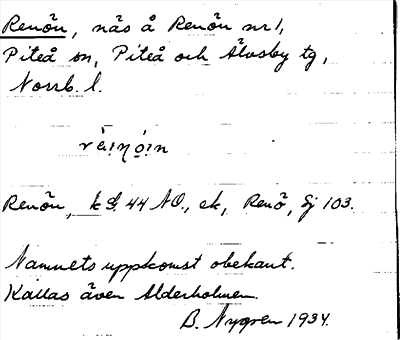 Renön, näs å Renön nr 1,
Piteå sn, Piteå och Älvsby tg,
Norrb. l.
Renön, k 44 NO, ek, Renö, Sj 103.
Namnets uppkomst obekant.
Kallas även Alderholmen.
B. Nygren 1934.